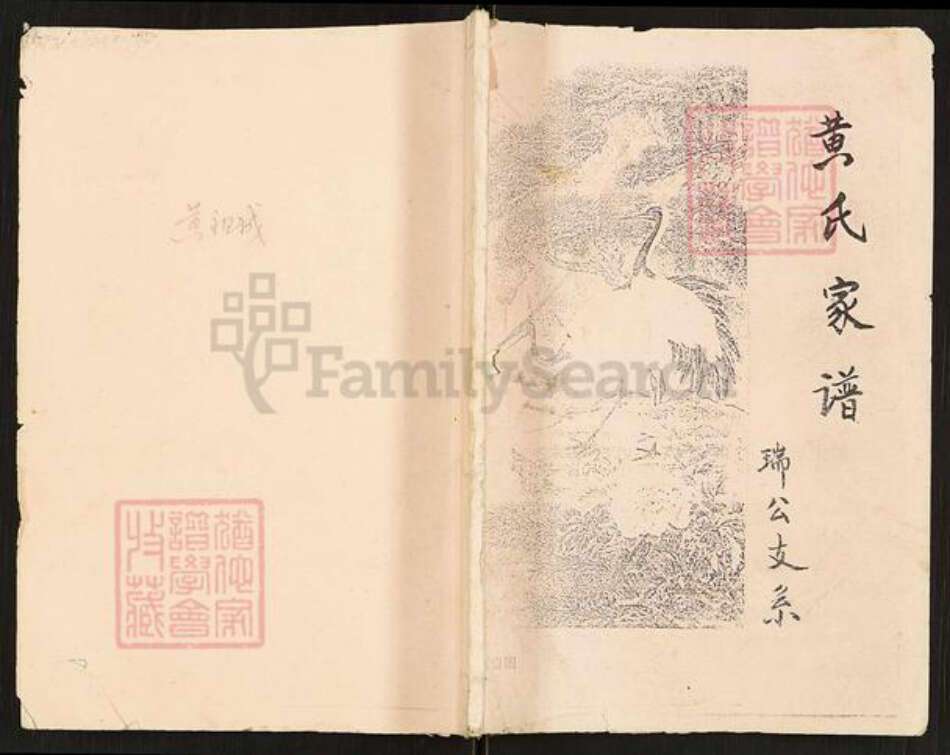 黄氏家谱
瑞公支系
猶他家
譜學會
收藏
猶他家
譜學會
FamilySearch